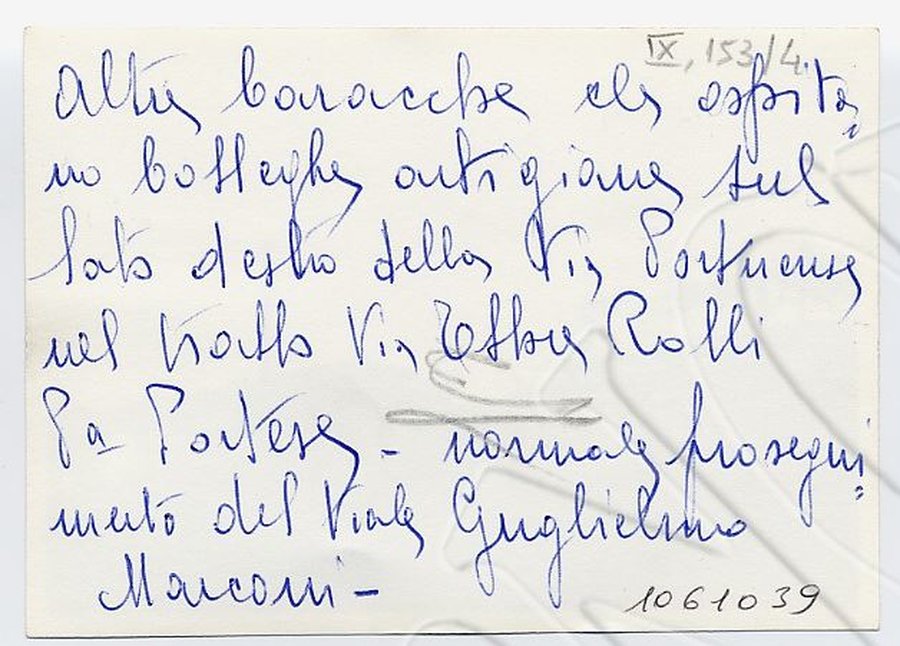 IX, 153/4
Altre baracche che ospita=
no botteghe artigiane sul
lato destro della Via Portuense
nel tratto Via Ettore Rolli
Pa Portese - normale prosegui=
mento del Viale Guglielmo
Marconi -
1061039